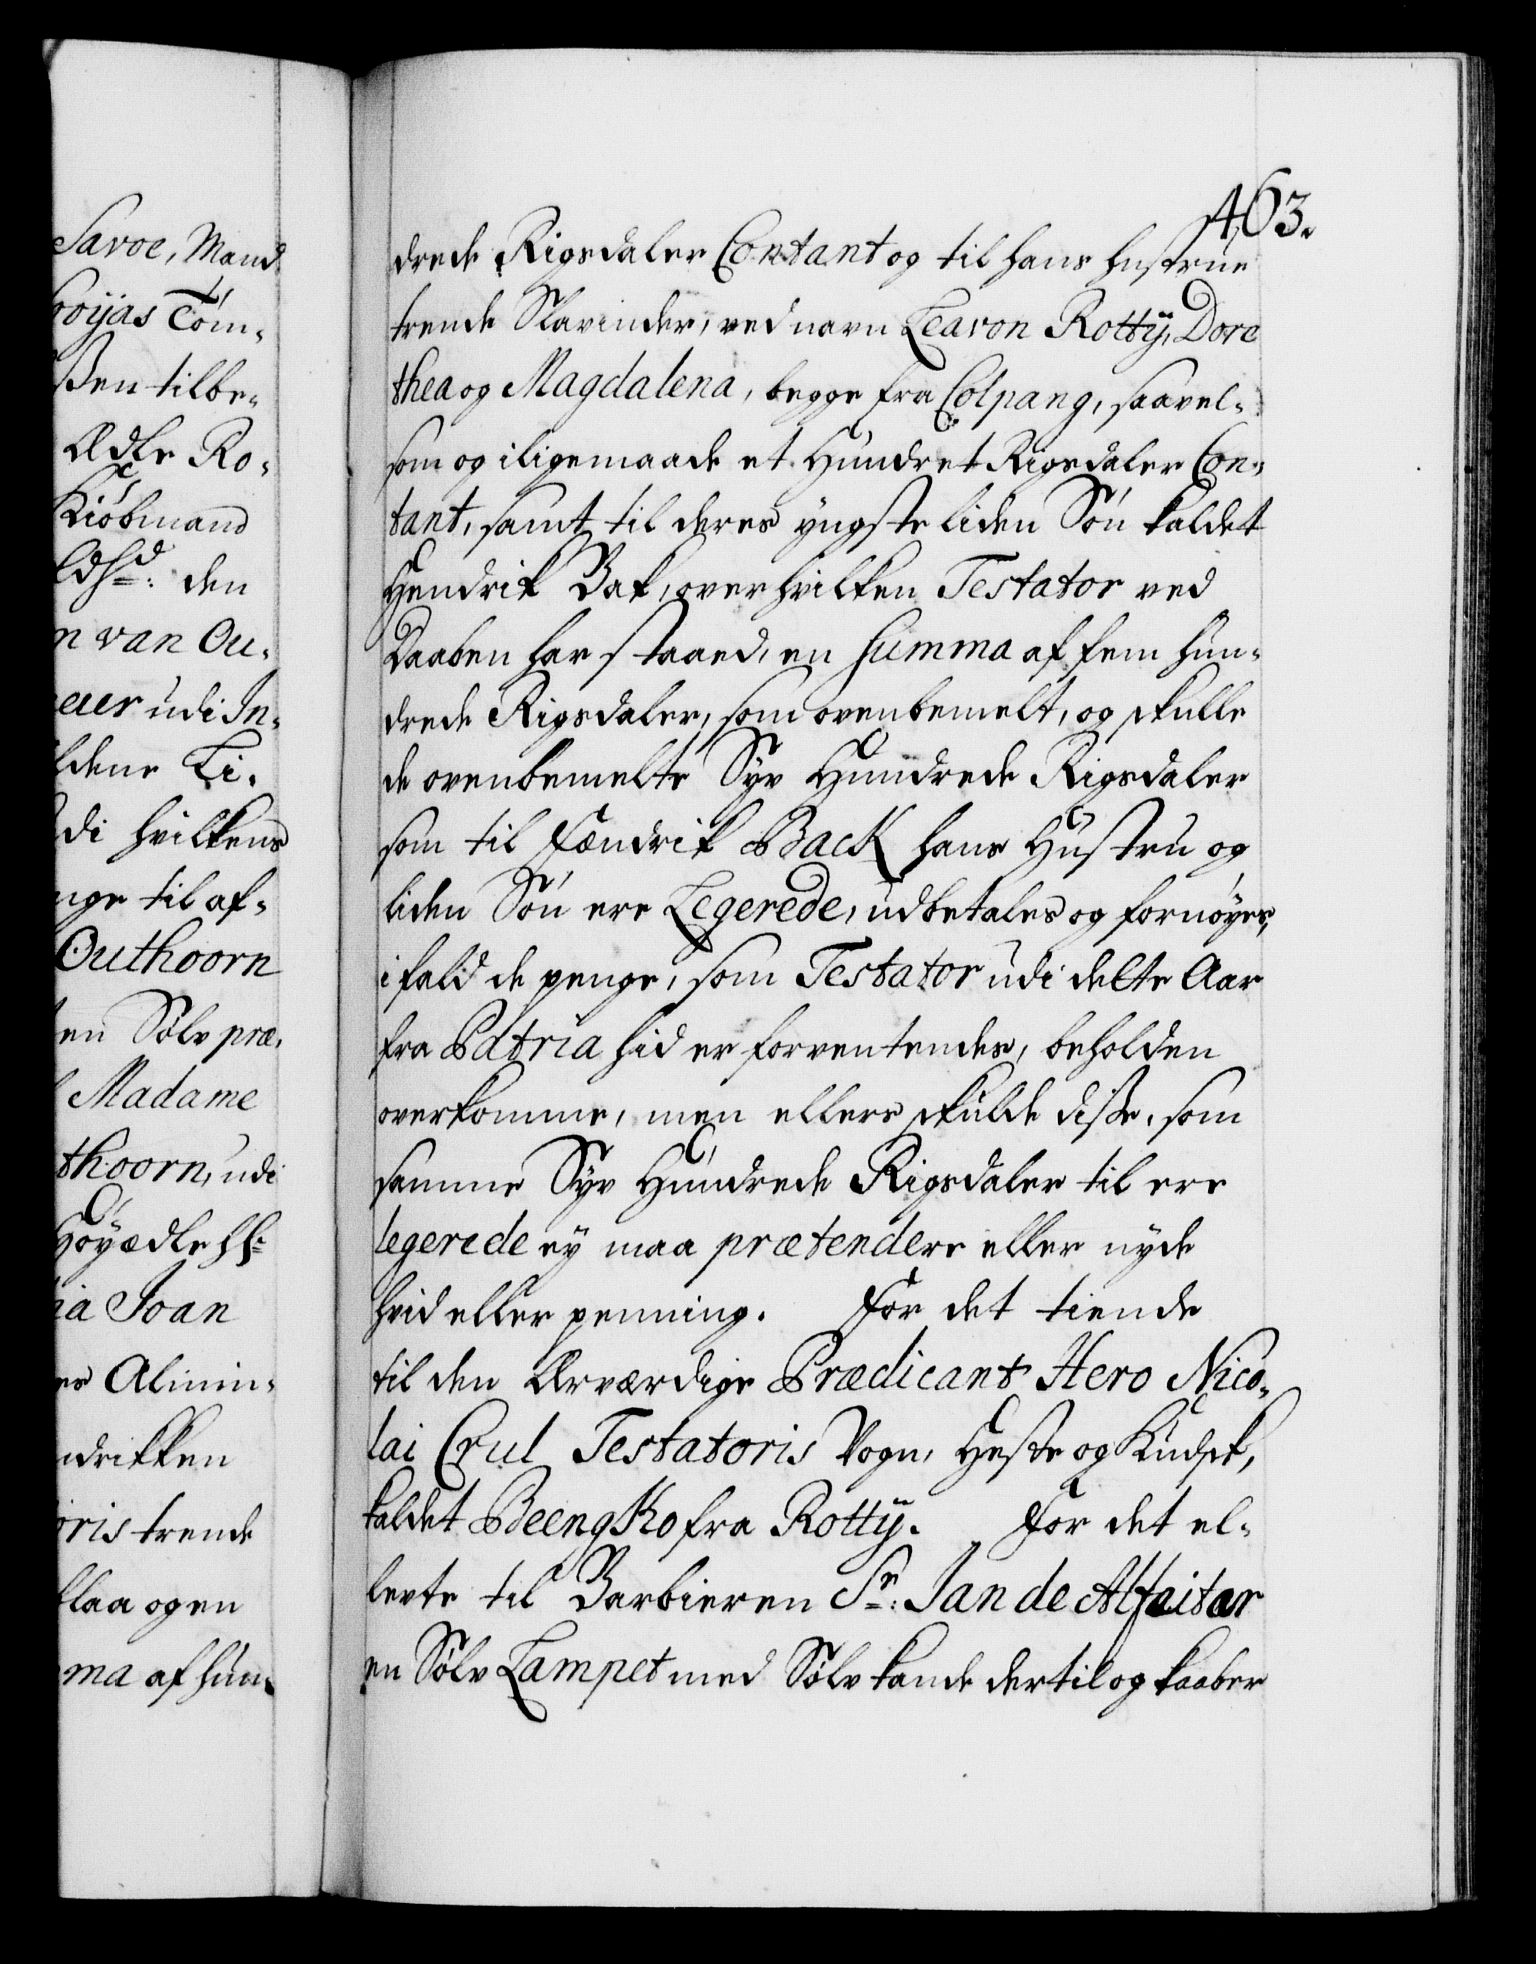 Savoe, Mand
ooijas Tøm-
ßen tilbe-
Ædle Ro-
Kiøbmand
den
n van Ou-
eur udi In-
ldene Li-
di hvilkens
nge til af-
Outhoorn
en Sølv præ-
Madame
thoorn, udi
Høyædle Hr:
ia Joan
es Alimin-
ndrikken
oris trende
klaa og en
ma af hun-
463.
drede Rigsdaler Contant og til hans hustrue
trende Slavinder, ved navn Leavon Rottÿ, Doro
thea og Magdalena, begge fra Colpang, saavel-
som og iligemaade et Hundret Rigsdaler Con-
tant, samt til deres yngste liden Søn kaldet
Hendrik Bak, over hvilken Testator ved
Daaben har staaed, en Summa af fem hun-
drede Rigsdaler, som ovenbemelt, og skulle
de ovenbemelte Syv Hundrede Rigsdaler
som til Fændrik Back hans Hustru og
liden Søn ere Legerede, udbetales og fornøyes,
ifald de penge, som Testator udi dette Aar
fra Patria hid er forventendes, beholden
overkomme, men ellers skulde disse, som
samme Syv Hundrede Rigsdaler til ere
legerede ey maa prætendere eller nyde
hvid eller penning. For det tiende
til den Ærværdige Prædicant Hero Nico-
lai Crul Testatoris Vogn, Heste og Kudsk,
kaldet Beengko fra Rottÿ. For det el-
levte til Barbieren Sr: Jan de Alfaitar
en Sølv Lampet med Sølv kande dertil og kaaber